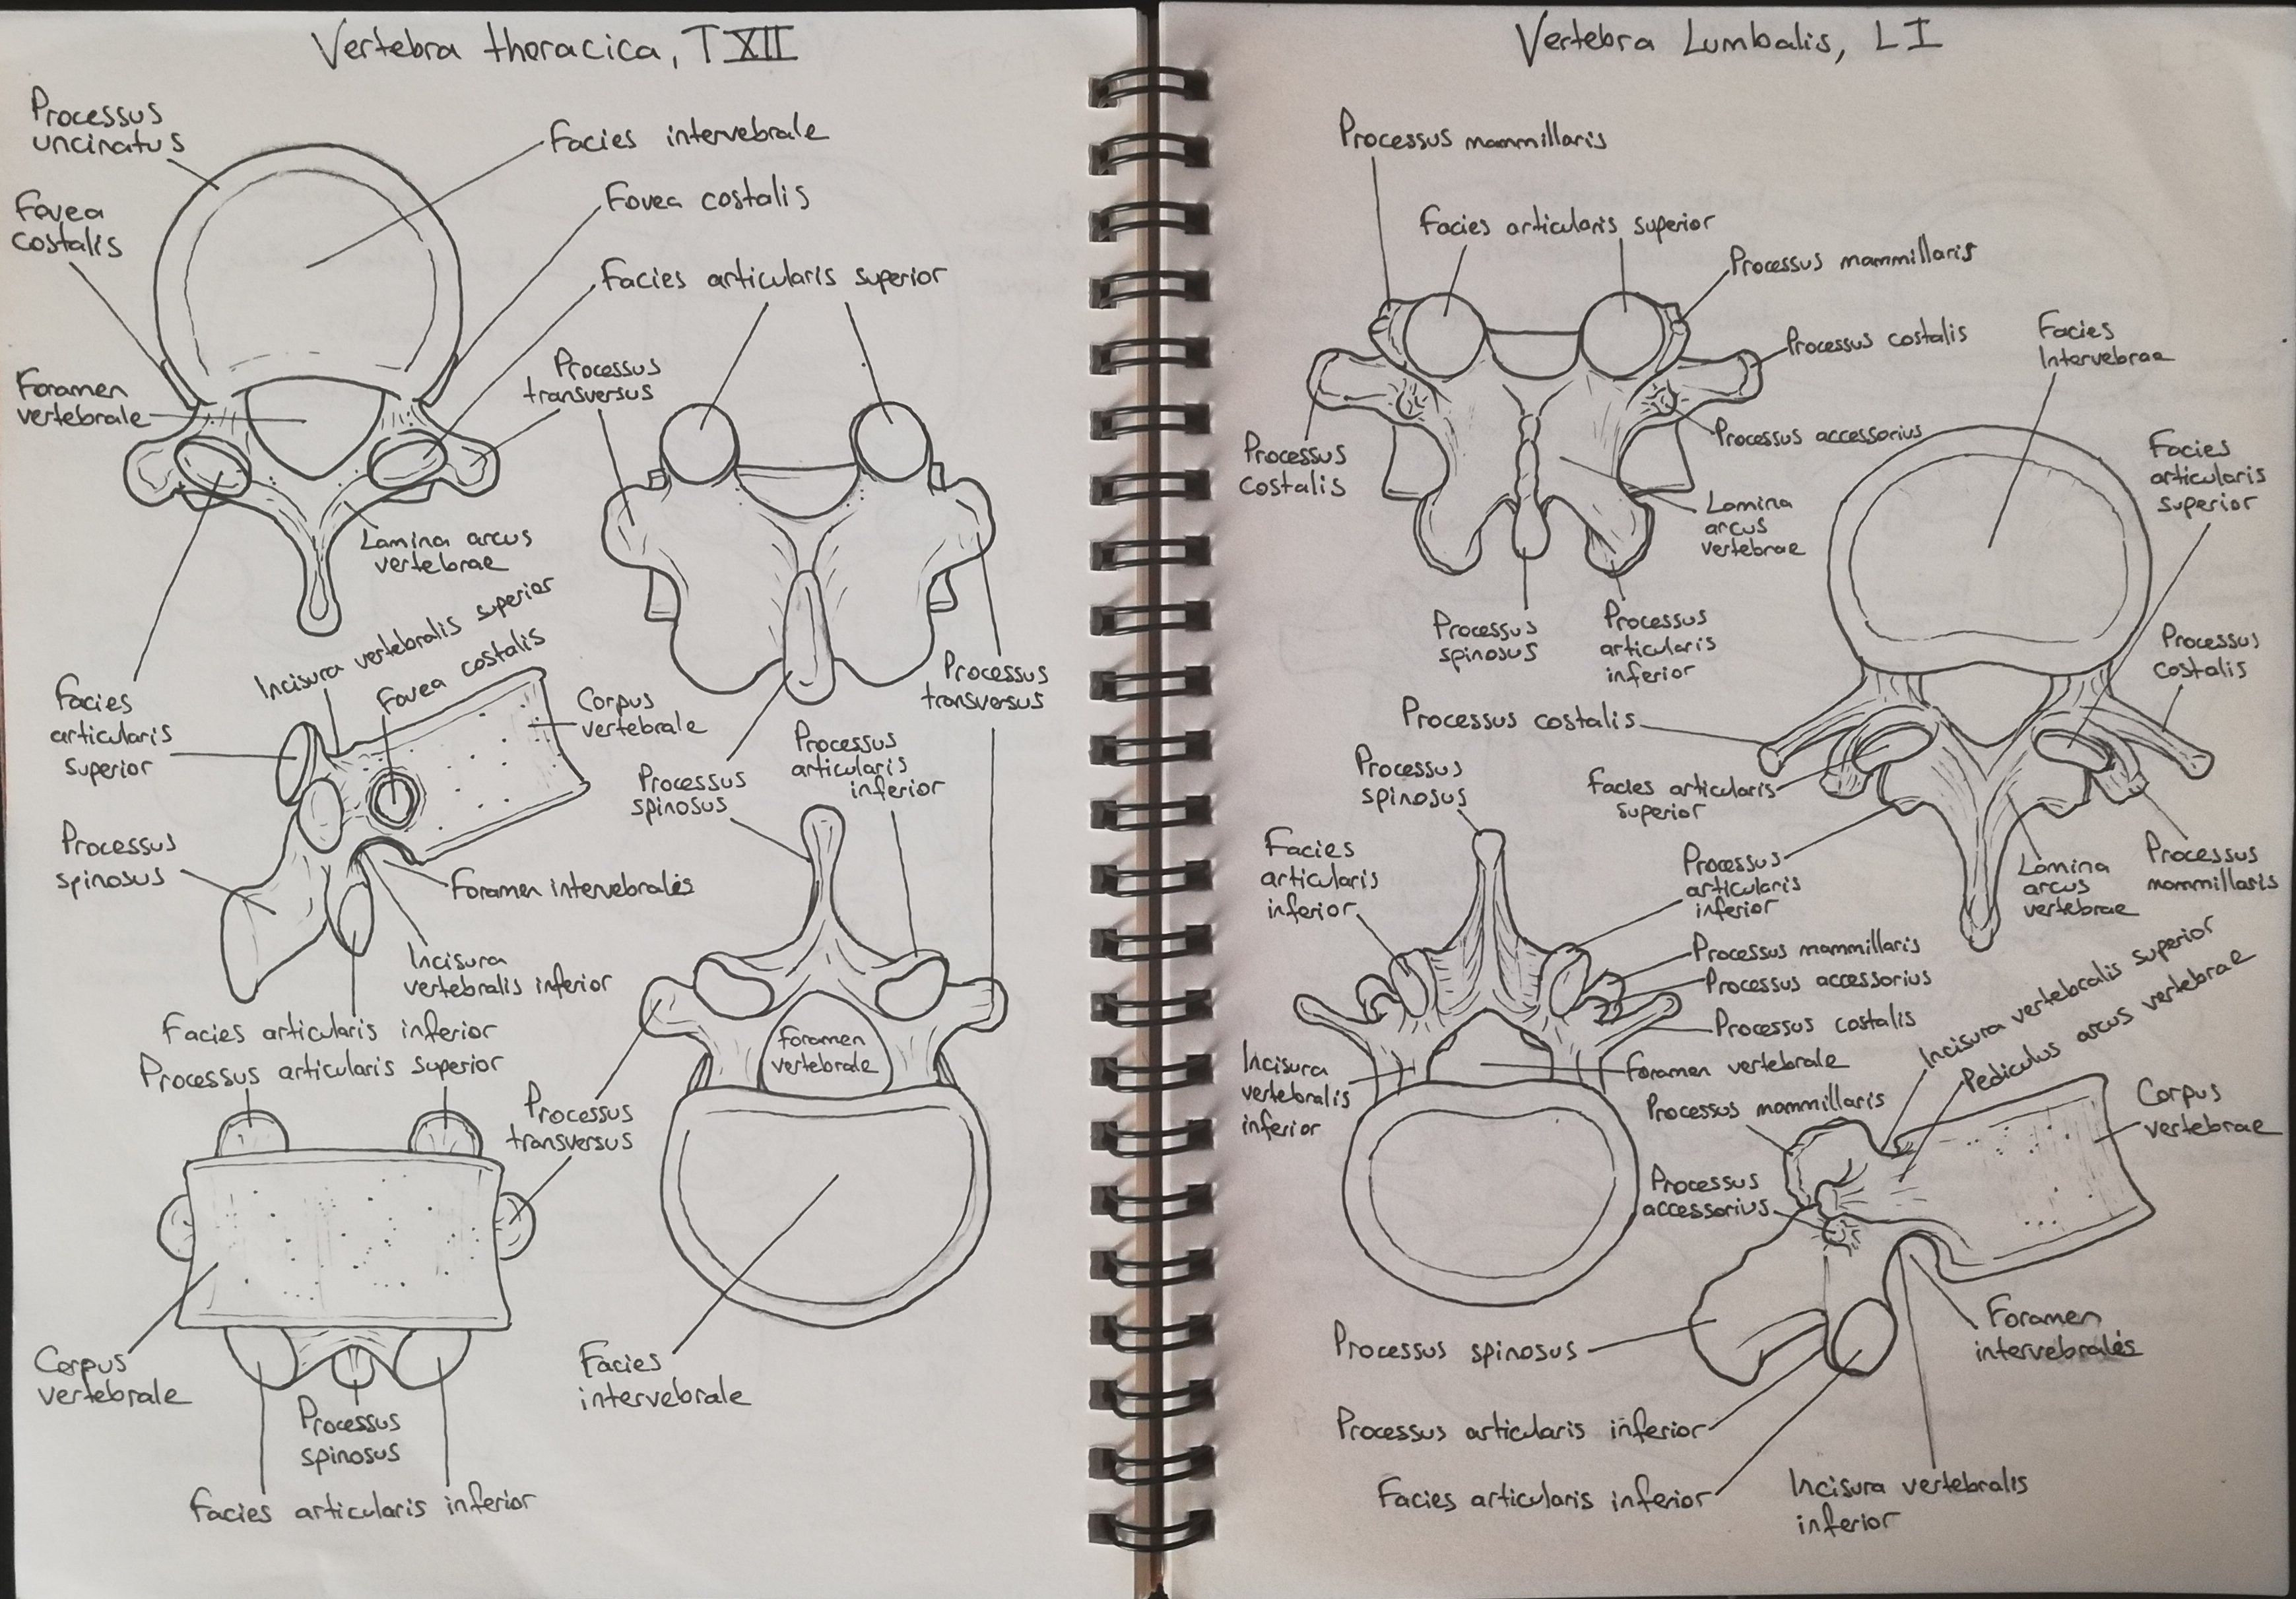 Vertebra thoracica, T XII
Processus
uncinatus
Facies intervebrale
Fovea
costalis
Fovea costalis
Facies articularis superior
Processus
transversus
Foramen
vertebrale
Lamina arcus
vertebrae
Incisura vertebralis superior
Fovea costalis
Facies
articularis
superior
Corpus
vertebrale
Processus
transversus
Processus
spinosus
Processus
articularis
inferior
Processus
spinosus
Foramen intervebrales
Incisura
vertebralis inferior
Facies articularis inferior
Processus articularis superior
Foramen
vertebrale
Processus
transversus
Corpus
vertebrale
Processus
spinosus
Facies articularis inferior
Facies
intervebrale
Vertebra Lumbalis, L I
Processus mammillaris
Facies articularis superior
Processus mammillaris
Processus costalis
Facies
Intervebrae
Processus accessorius
Processus
costalis
Facies
articularis
superior
Lamina
arcus
vertebrae
Processus
spinosus
Processus
articularis
inferior
Processus
costalis
Processus costalis
Processus
spinosus
Facies articularis
superior
Facies
articularis
inferior
Processus
articularis
inferior
Lamina
arcus
vertebrae
Processus
mammillaris
Processus mammillaris
Processus accessorius
Processus costalis
Incisura vertebralis superior
Pediculus arcus vertebrae
Incisura
vertebralis
inferior
Foramen vertebrale
Processus mammillaris
Corpus
vertebrae
Processus
accessorius
Processus spinosus
Foramen
intervebrales
Processus articularis inferior
Facies articularis inferior
Incisura vertebralis
inferior